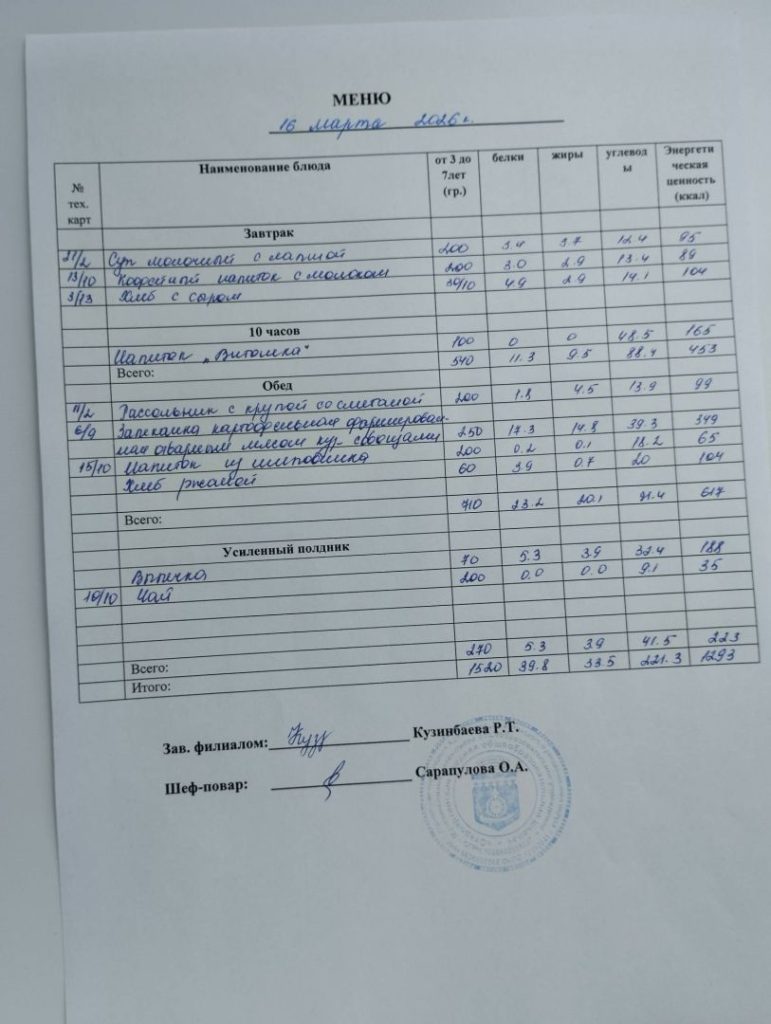 МЕНЮ
16 марта 2026 г.
№ тех. карт Наименование блюда от 3 до 7лет (гр.) белки жиры углеводы Энергетическая ценность (ккал)
Завтрак
21/2 Суп молочный с лапшой 200 3.4 3.7 12.4 95
13/10 Кофейный напиток с молоком 200 3.0 2.9 13.4 89
3/13 Хлеб с сыром 30/10 4.9 2.9 14.1 104
10 часов
Напиток „Витошка" 100 0 0 48.5 165
Всего: 540 11.3 9.5 88.4 453
Обед
11/2 Рассольник с крупой со сметаной 200 1.8 4.5 13.9 99
6/9 Запеканка картофельная фаршированная отварным мясом кур с овощами 250 17.3 14.8 39.3 349
15/10 Напиток из шиповника 200 0.2 0.1 18.2 65
Хлеб ржаной 60 3.9 0.7 20 104
Всего: 710 23.2 20.1 91.4 617
Усиленный полдник
Выпечка 70 5.3 3.9 32.4 188
10/10 Чай 200 0.0 0.0 9.1 35
Всего: 270 5.3 3.9 41.5 223
Итого: 1520 39.8 33.5 221.3 1293
Зав. филиалом: Кузинбаева Р.Т.
Шеф-повар: Сарапулова О.А.